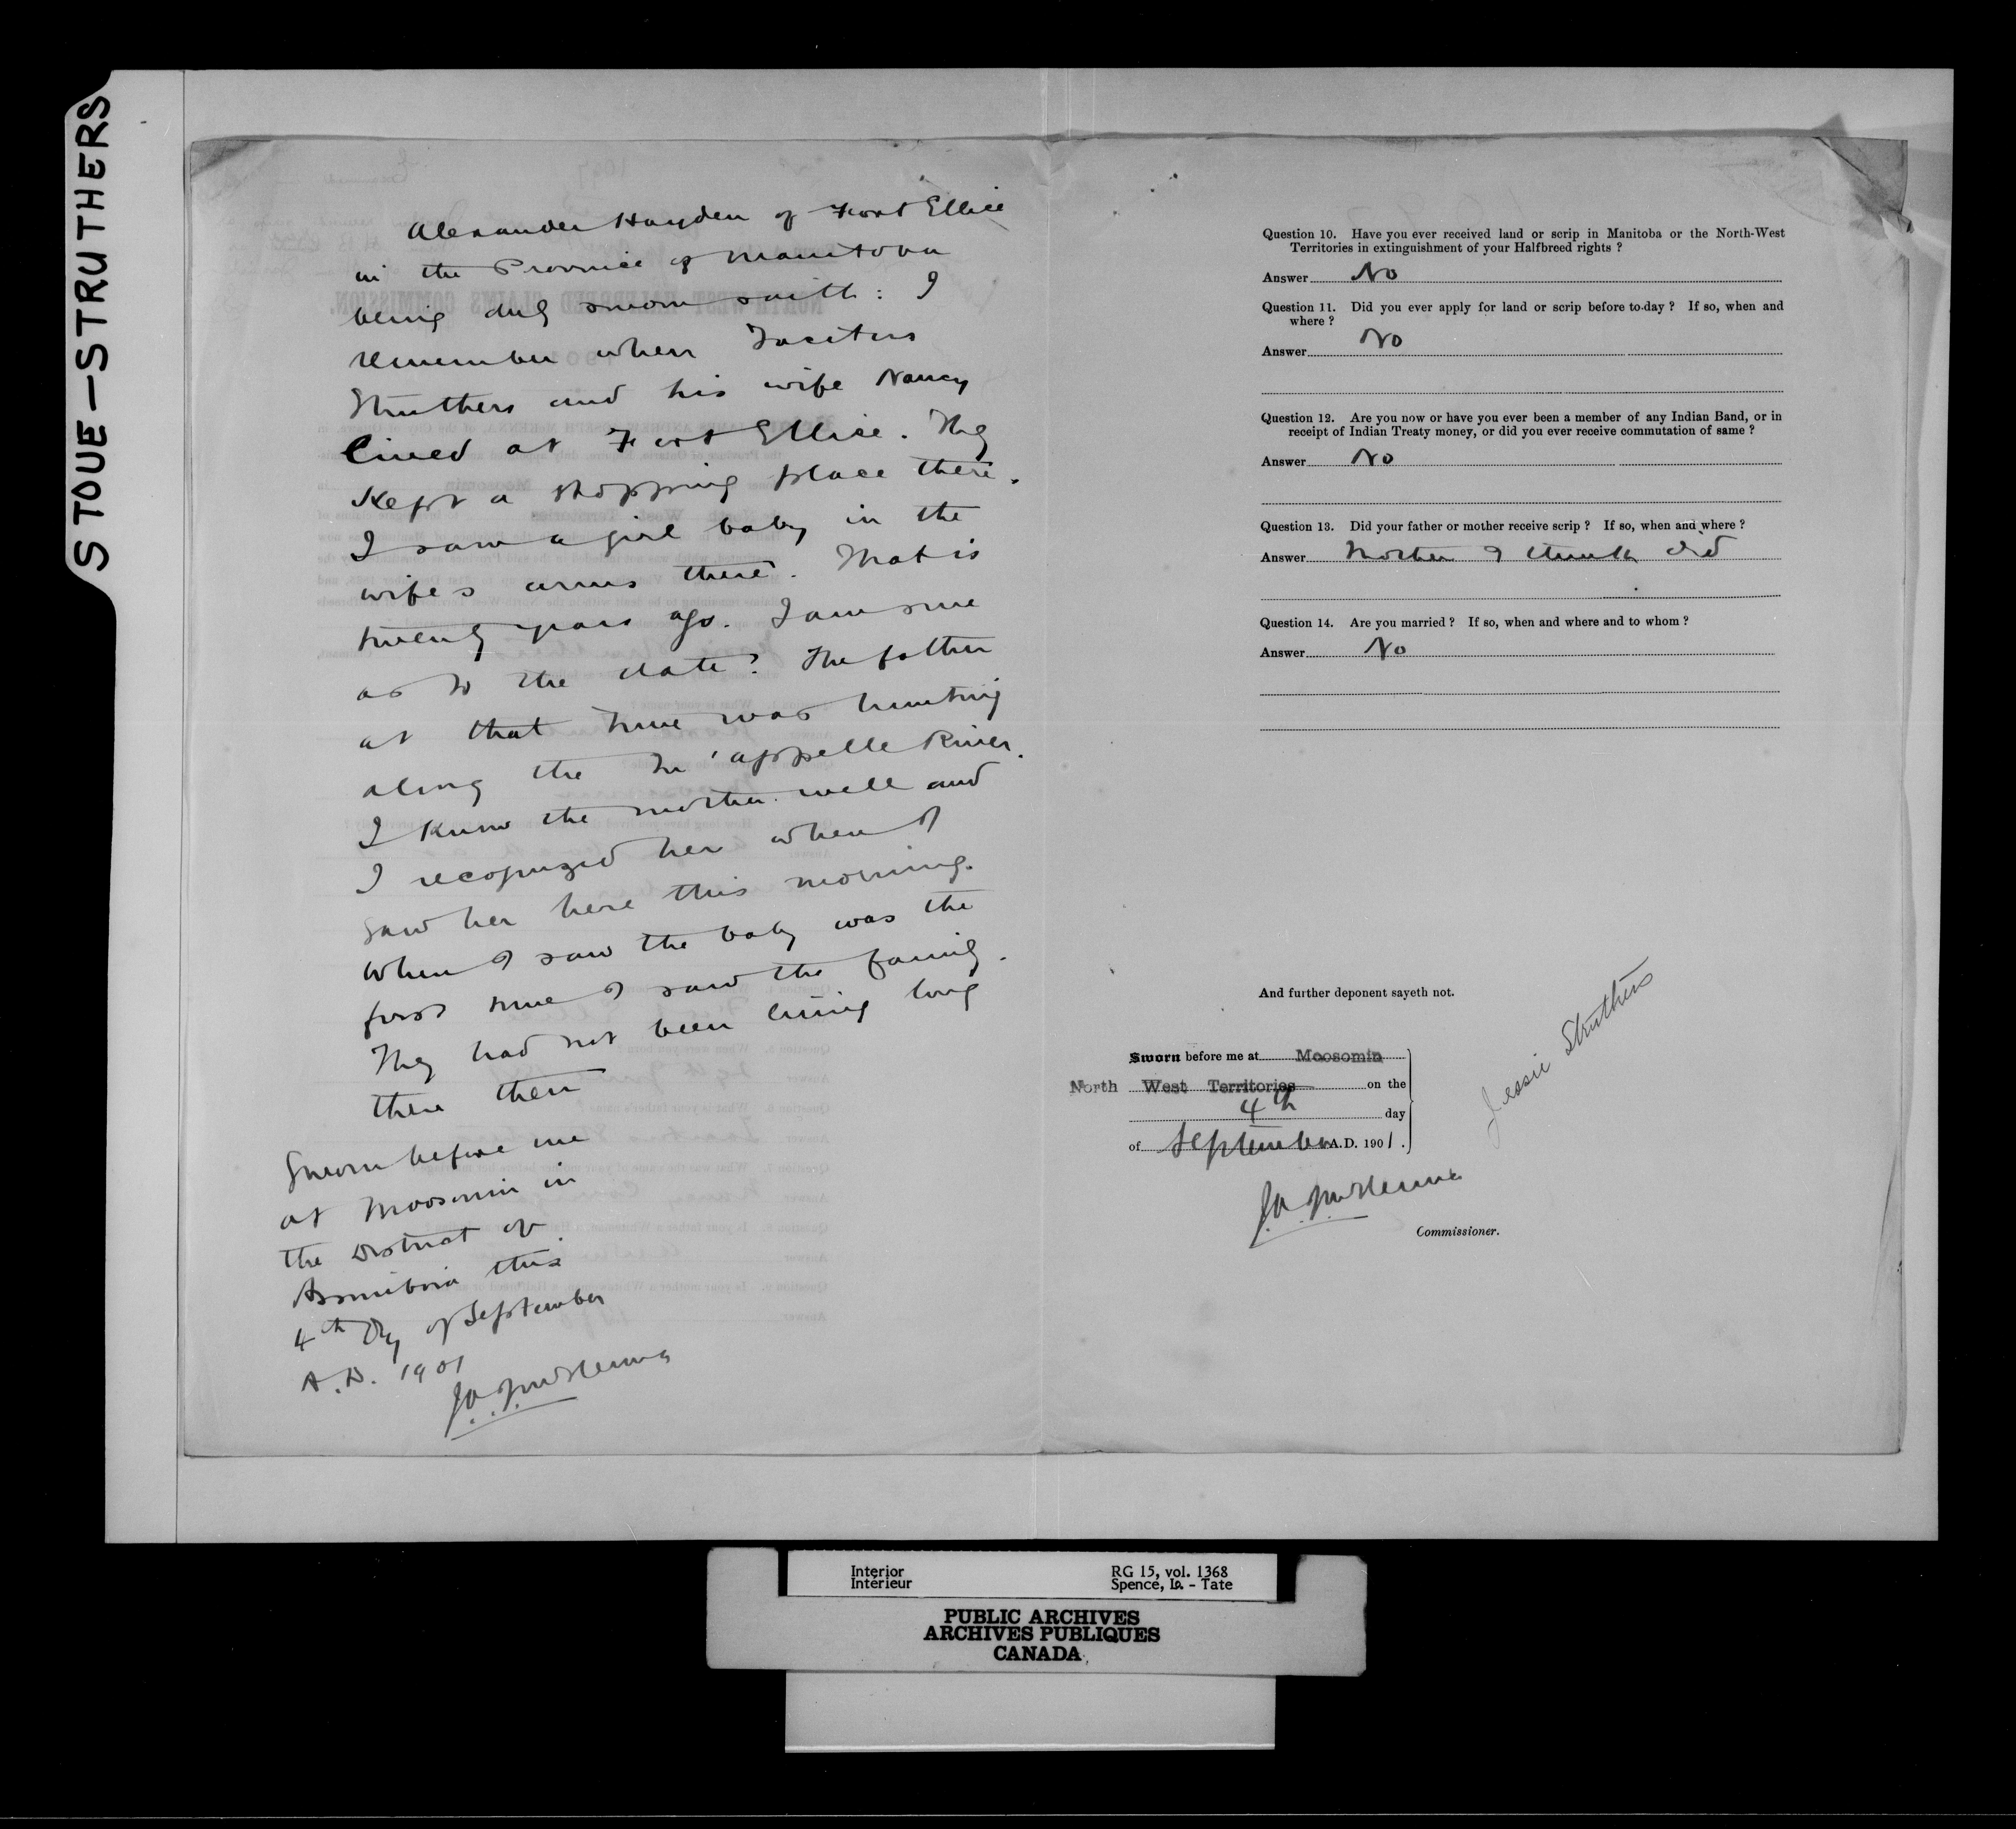 STOUE—STRUTHERS
Alexander Hayden of Fort Ellice
in the Province of Manitoba
being duly sworn saith: I
remember when Tacitus
Struthers and his wife Nancy
lived at Fort Ellice. They
Kept a stopping place there.
I saw a girl baby in the
wife's arms there. That is
twenty years ago. I am sure
as to the date. The father
at that time was hunting
along the Qu'appelle River.
I know the mother well and
I recognized her when I
saw her here this morning.
When I saw the baby was the
first time I saw the family.
They had not been living long
there then
Sworn before me
at Moosomin in
the District of
Assiniboia this
4th Day of September
A.D. 1901
J.A.J. McKenna
Question 10. Have you ever received land or scrip in Manitoba or the North-West
Territories in extinguishment of your Halfbreed rights ?
Answer No
Question 11. Did you ever apply for land or scrip before to-day ? If so, when and
where ?
Answer No
Question 12. Are you now or have you ever been a member of any Indian Band, or in
receipt of Indian Treaty money, or did you ever receive commutation of same ?
Answer No
Question 13. Did your father or mother receive scrip ? If so, when and where ?
Answer Mother I think did
Question 14. Are you married ? If so, when and where and to whom ?
Answer No
And further deponent sayeth not.
Sworn before me at Moosomin
North West Territories on the
4th day
of September A.D. 1901.
Jessie Struthers
J.A.J. McKenna
Commissioner.
Interior
Intérieur
RG 15, vol. 1368
Spence, Is. - Tate
PUBLIC ARCHIVES
ARCHIVES PUBLIQUES
CANADA